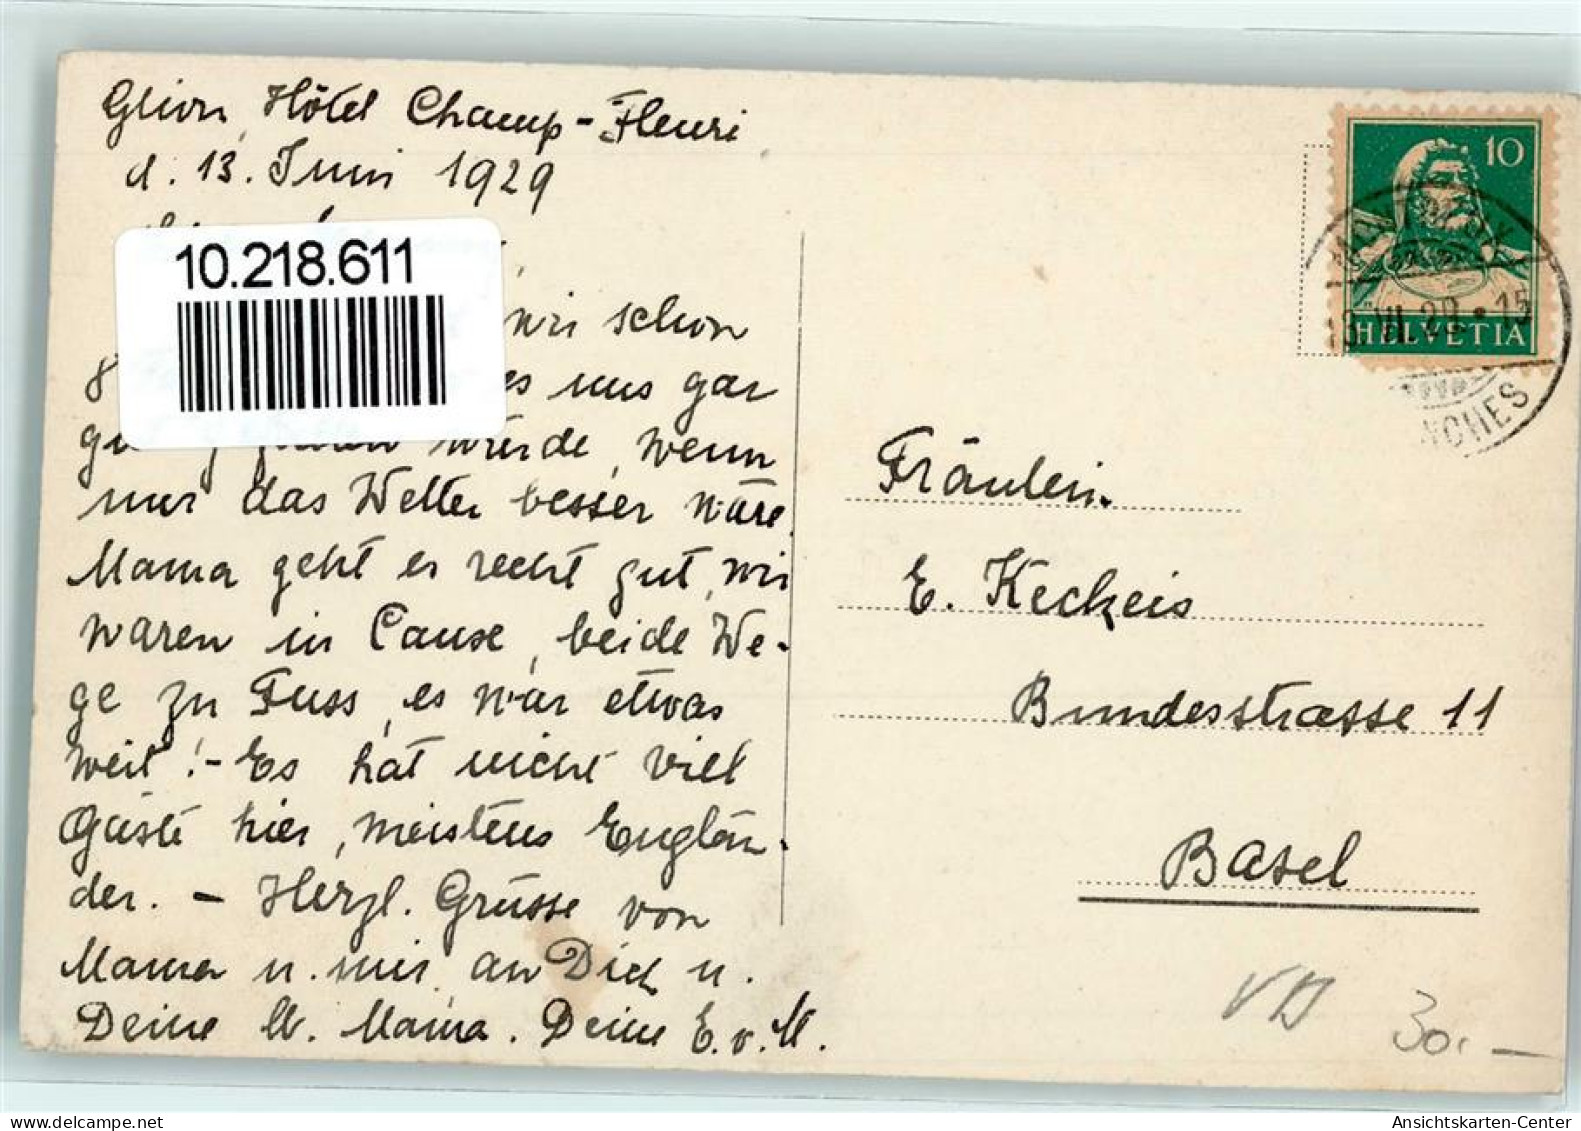 Glion, Hôtel Champ-Fleuri
d. 13. Juni 1929
10.218.611
wir schon
8 es uns gar
gefallen würde, wenn
nur das Wetter besser wäre.
Mama geht es recht gut, wir
waren in Cause, beide We-
ge zu Fuss, es war etwas
weit! - Es hat nicht viel
Gäste hier, meistens Englän-
der. - Herzl. Grüsse von
Mama u. mir an Dich u.
Deine lb. Mama. Deine E. v. M.
10
HELVETIA
NCHES
Fräulein
E. Keckeis
Bundesstrasse 11
Basel
30.-
Ansichtskarten-Center